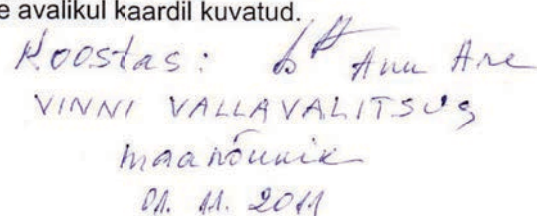 e avalikul kaardil kuvatud.
Koostas: Anu Are
VINNI VALLAVALITSUS
maanõunik
01. 11. 2011